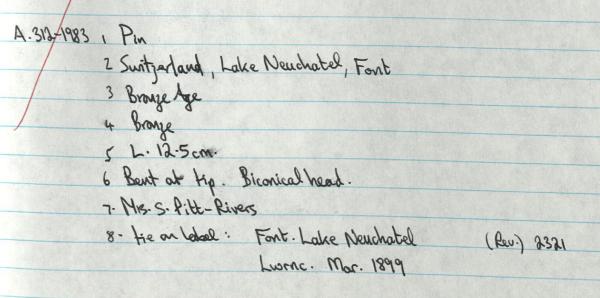 A.312-1983 1 Pin
2 Switzerland, Lake Neuchatel, Font
3 Bronze Age
4 Bronze
5 L. 12.5cm.
6 Bent at tip. Biconical head.
7. Mrs. S. Pitt-Rivers
8. tie on label: Font. Lake Neuchatel (Rev.) 2321
Lwrnc. Mar. 1899